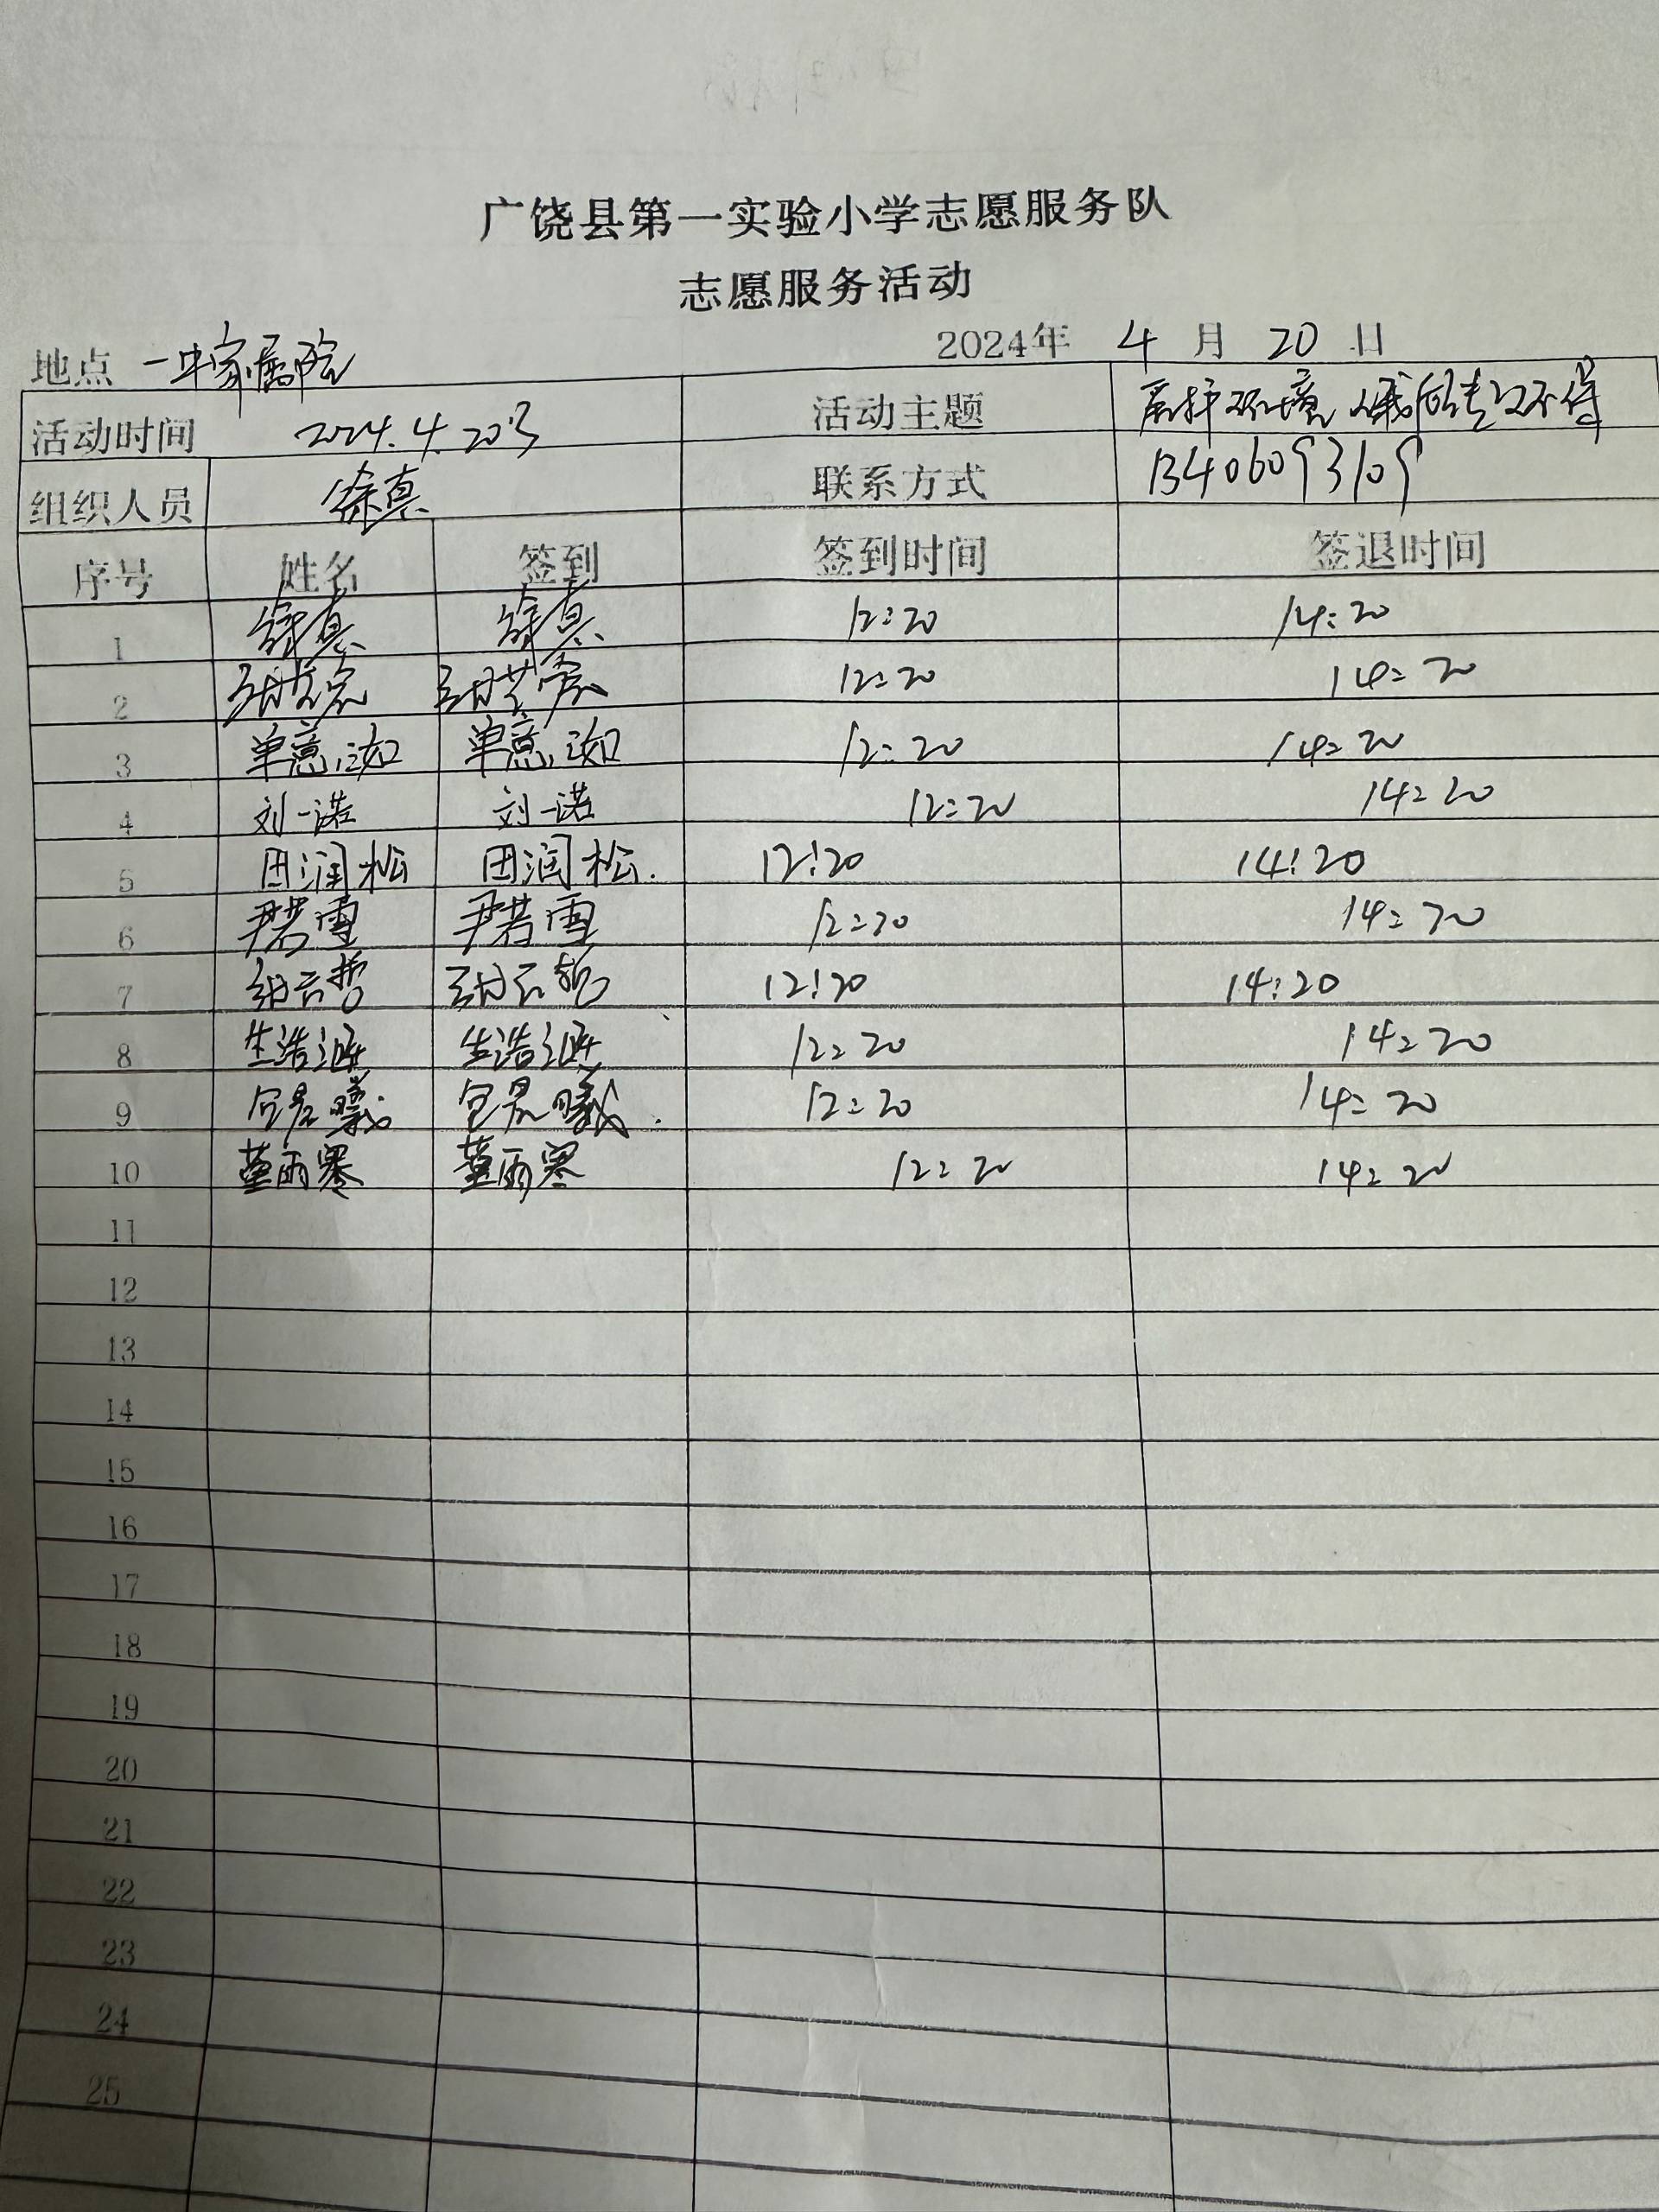 广饶县第一实验小学志愿服务队
志愿服务活动
地点 一中家属院 2024年 4 月 20 日
活动时间 2024.4.20号 活动主题 爱护环境 人人有责
组织人员 徐真 联系方式 13406093109
序号 姓名 签到 签到时间 签退时间
1 徐真 徐真 12:20 14:20
2 12:20 14:20
3 单意涵 单意涵 12:20 14:20
4 刘一诺 刘一诺 12:20 14:20
5 田润松 田润松. 12:20 14:20
6 尹若雪 尹若雪 12:20 14:20
7 12:20 14:20
8 生浩 生浩 12:20 14:20
9 曦 曦 12:20 14:20
10 董雨寒 董雨寒 12:20 14:20
11
12
13
14
15
16
17
18
19
20
21
22
23
24
25